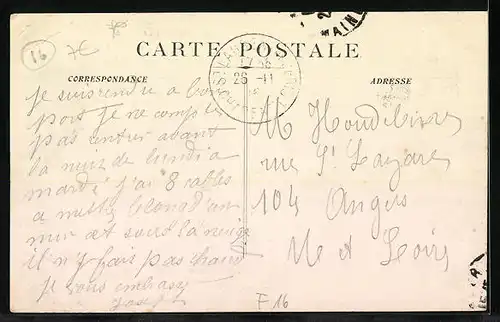 16
7€
CARTE POSTALE
CORRESPONDANCE
ADRESSE
17 35
26 - 11
Je suis rendu a bon
port Je ne compte
pas rentrer avant
la nuit de lundi a
mardi j'ai 8 cables
a mettre
et sous la neige
il n'y fait pas chaud
Je vous embrasse
Joseph
M Houdebine
rue St Lazare
104 Angers
M et Loire
F 16